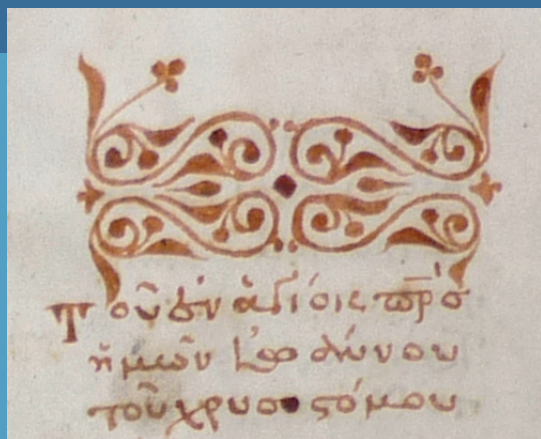 Τοῦ ἐν ἁγίοις πρ̅ς
ἡμῶν Ἰω αννου
τοῦ χρυσοστόμου